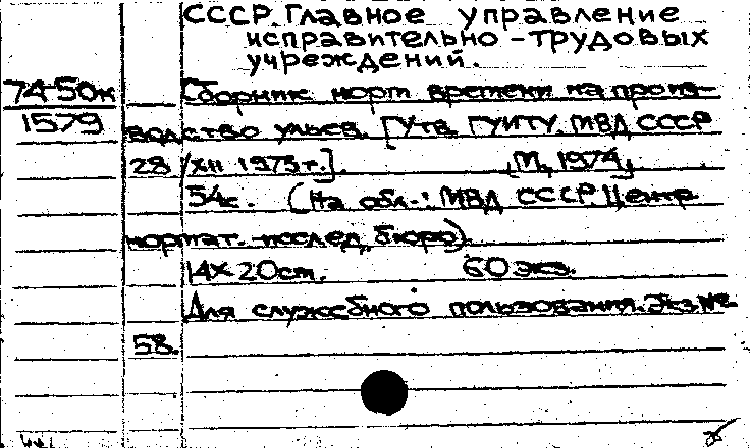 СССР. Главное управление
исправительно-трудовых
учреждений.
74-50к
1579
Сборник норм времени на произ-
водство ульев. [Утв. ГУИТУ. МВД СССР
28/XII 1973 г.]. [М., 1974].
54с. (На обл.: МВД СССР. Центр.
нормат.-исслед. бюро).
14х20см. 60 экз.
Для служебного пользования. Экз. №
58.